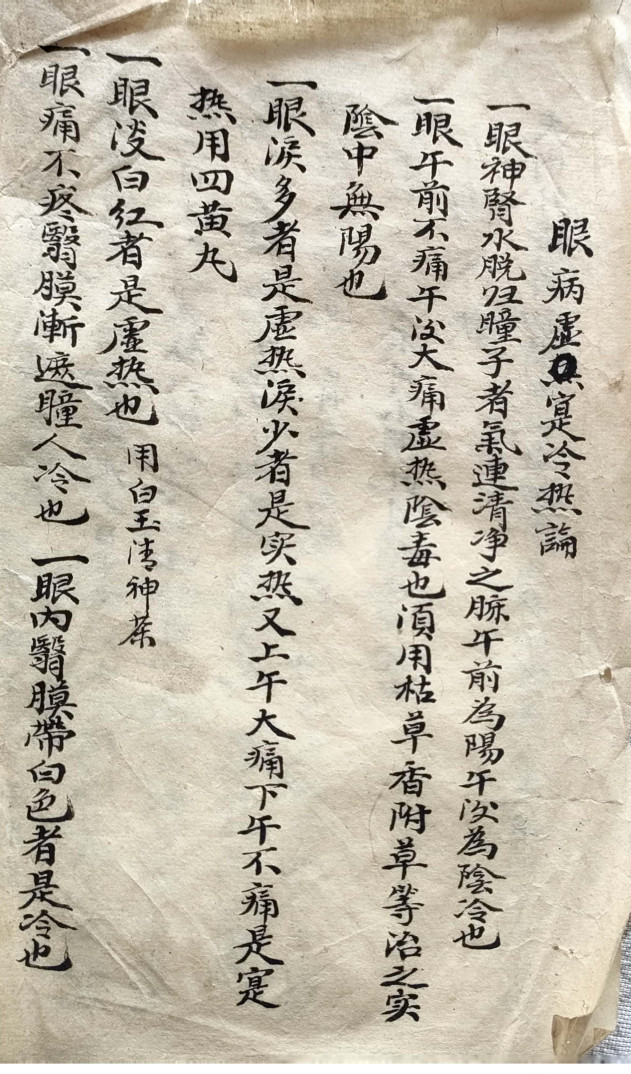 眼病虛寔冷热論
一眼神腎水脱归瞳子者氣連清净之脉午前為陽午後為陰冷也
一眼午前不痛午後大痛虛热陰毒也須用枯草香附草等治之实
陰中無陽也
一眼淚多者是虛热淚少者是实热又上午大痛下午不痛是寔
热用四黄丸
一眼淡白红者是虛热也 用白玉清神茶
一眼痛不疼翳膜漸遮瞳人冷也 一眼内翳膜帶白色者是冷也